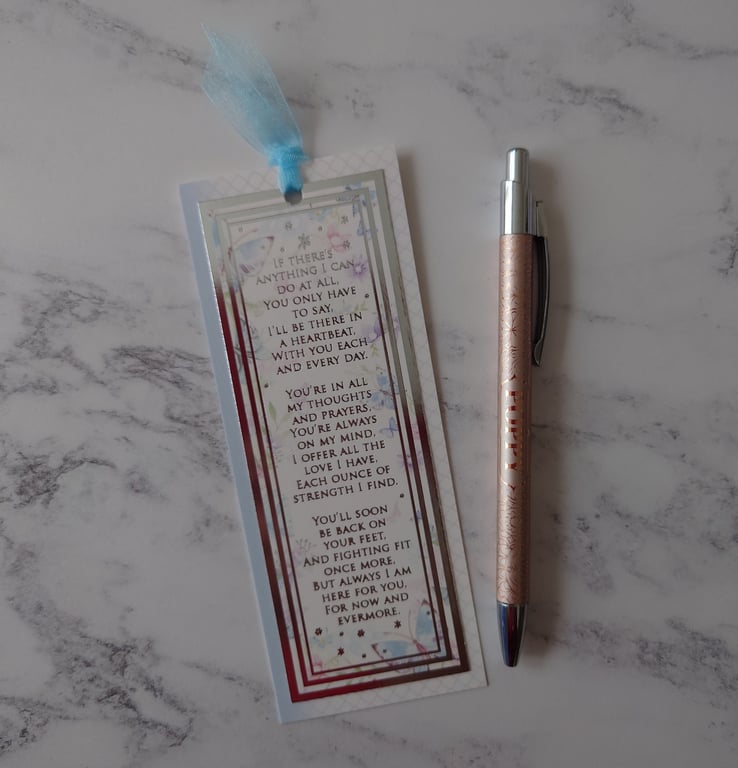 IF THERE'S
ANYTHING I CAN
DO AT ALL,
YOU ONLY HAVE
TO SAY,
I'LL BE THERE IN
A HEARTBEAT,
WITH YOU EACH
AND EVERY DAY.
YOU'RE IN ALL
MY THOUGHTS
AND PRAYERS,
YOU'RE ALWAYS
ON MY MIND,
I OFFER ALL THE
LOVE I HAVE,
EACH OUNCE OF
STRENGTH I FIND.
YOU'LL SOON
BE BACK ON
YOUR FEET,
AND FIGHTING FIT
ONCE MORE,
BUT ALWAYS I AM
HERE FOR YOU,
FOR NOW AND
EVERMORE.